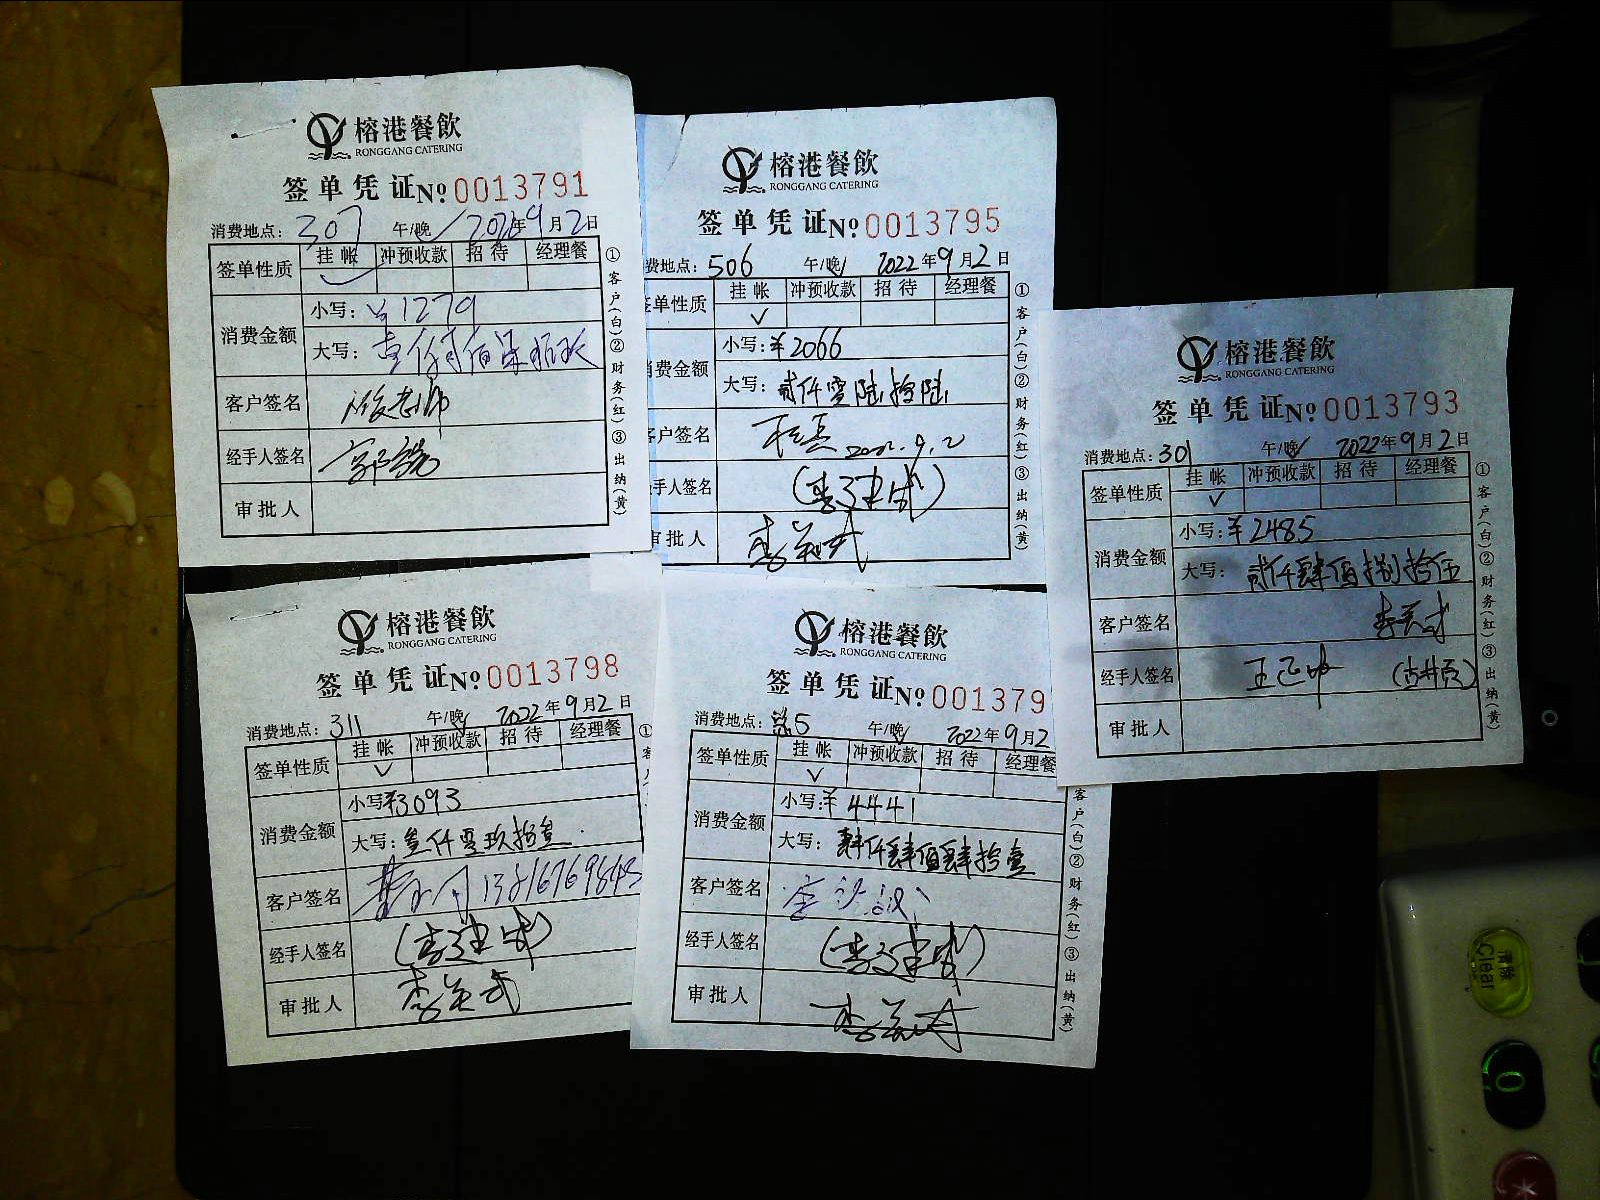 榕港餐飲
RONGGANG CATERING
签单凭证№0013791
消费地点：307 午/晚✓ 2022年9月2日
签单性质 挂帐 冲预收款 招待 经理餐
✓
消费金额 小写：¥1279
大写：壹仟贰佰柒拾玖
客户签名
经手人签名 郭
审批人
①客户(白)②财务(红)③出纳(黄)
榕港餐飲
RONGGANG CATERING
签单凭证№0013795
费地点：506 午/晚✓ 2022年9月2日
签单性质 挂帐 冲预收款 招待 经理餐
✓
消费金额 小写：¥2066
大写：贰仟零陆拾陆
客户签名 2022.9.2
手人签名 (李建成)
审批人
①客户(白)②财务(红)③出纳(黄)
榕港餐飲
RONGGANG CATERING
签单凭证№0013793
消费地点：301 午/晚✓ 2022年9月2日
签单性质 挂帐 冲预收款 招待 经理餐
✓
消费金额 小写：¥2485
大写：贰仟肆佰捌拾伍
客户签名
经手人签名 王正坤
审批人
①客户(白)②财务(红)③出纳(黄)
榕港餐飲
RONGGANG CATERING
签单凭证№0013798
消费地点：311 午/晚✓ 2022年9月2日
签单性质 挂帐 冲预收款 招待 经理餐
✓
消费金额 小写：¥3093
大写：叁仟零玖拾叁
客户签名
经手人签名 (李建成)
审批人
①客
榕港餐飲
RONGGANG CATERING
签单凭证№001379
消费地点：5 午/晚✓ 2022年9月2
签单性质 挂帐 冲预收款 招待 经理餐
✓
消费金额 小写：¥4441
大写：肆仟肆佰肆拾壹
客户签名
经手人签名 (李建成)
审批人
客户(白)②财务(红)③出纳(黄)
清除
Clear
0